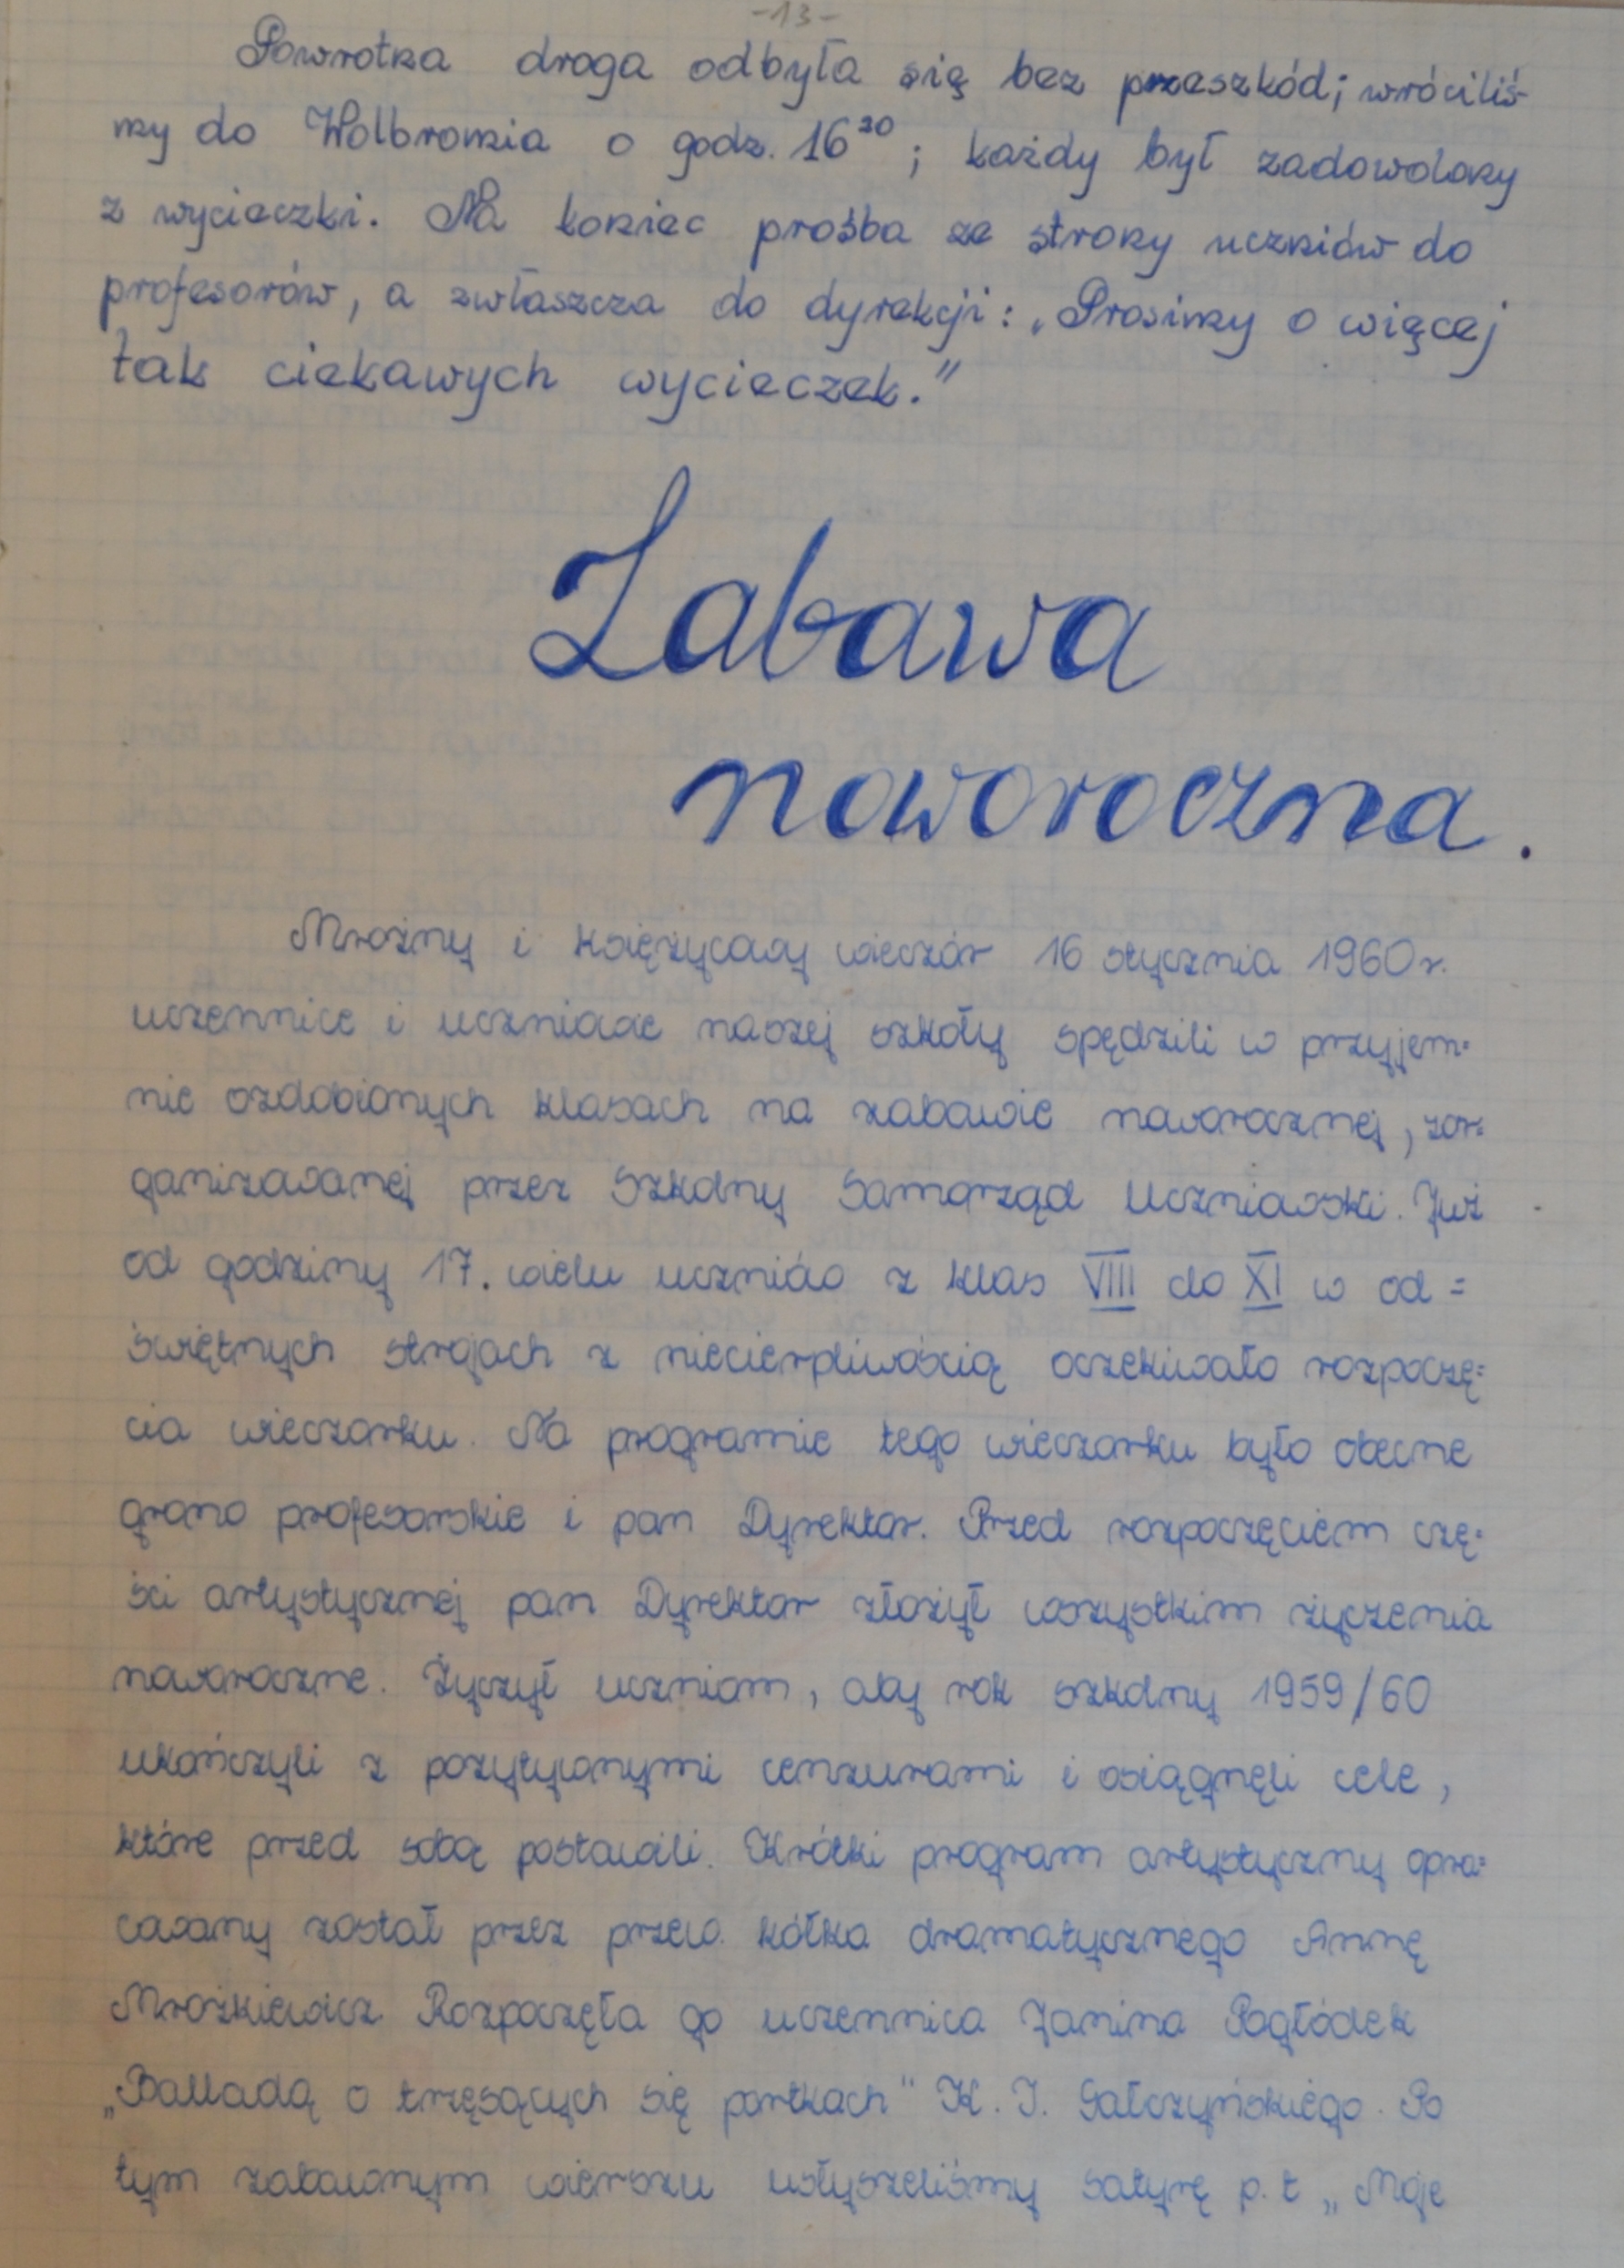 -13-
Powrotna droga odbyła się bez przeszkód; wróciliś-
my do Wolbromia o godz. 16³⁰; każdy był zadowolony
z wycieczki. Na koniec prośba ze strony uczniów do
profesorów, a zwłaszcza do dyrekcji: „Prosimy o więcej
tak ciekawych wycieczek."
Zabawa
noworoczna.
Mroźny i księżycowy wieczór 16 stycznia 1960 r.
uczennice i uczniowie naszej szkoły spędzili w przyjem=
nie ozdobionych klasach na zabawie noworocznej, zor=
ganizowanej przez Szkolny Samorząd Uczniowski. Już
od godziny 17. wielu uczniów z klas VIII do XI w od=
świętnych strojach z niecierpliwością oczekiwało rozpoczę=
cia wieczorku. Na programie tego wieczorku było obecne
grono profesorskie i pan Dyrektor. Przed rozpoczęciem czę=
ści artystycznej pan Dyrektor złożył wszystkim życzenia
noworoczne. Życzył uczniom, aby rok szkolny 1959/60
ukończyli z pozytywnymi cenzurami i osiągnęli cele,
które przed sobą postawili. Krótki program artystyczny opra=
cowany został przez przew. kółka dramatycznego Annę
Mroźkiewicz. Rozpoczęła go uczennica Janina Pogłódek
„Balladą o trzęsących się portkach" K. I. Gałczyńskiego. Po
tym zabawnym wierszu usłyszeliśmy satyrę p. t „Moje